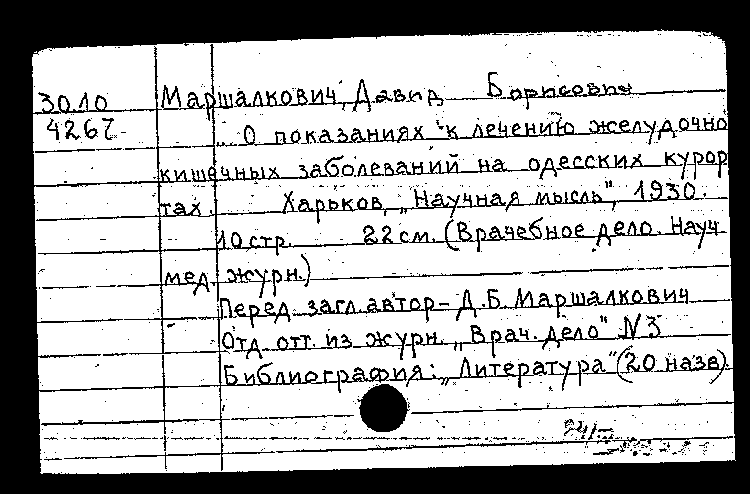 30.10
4267
Маршалкович, Давид Борисович
О показаниях к лечению желудочно
кишечных заболеваний на одесских курор
тах. Харьков, „Научная мысль", 1930.
10 стр. 22 см. (Врачебное дело. Науч
мед. журн.)
Перед. загл. автор – Д.Б. Маршалкович
Отд. отт. из журн. „Врач. дело" N 3
Библиография: „Литература" (20 назв).